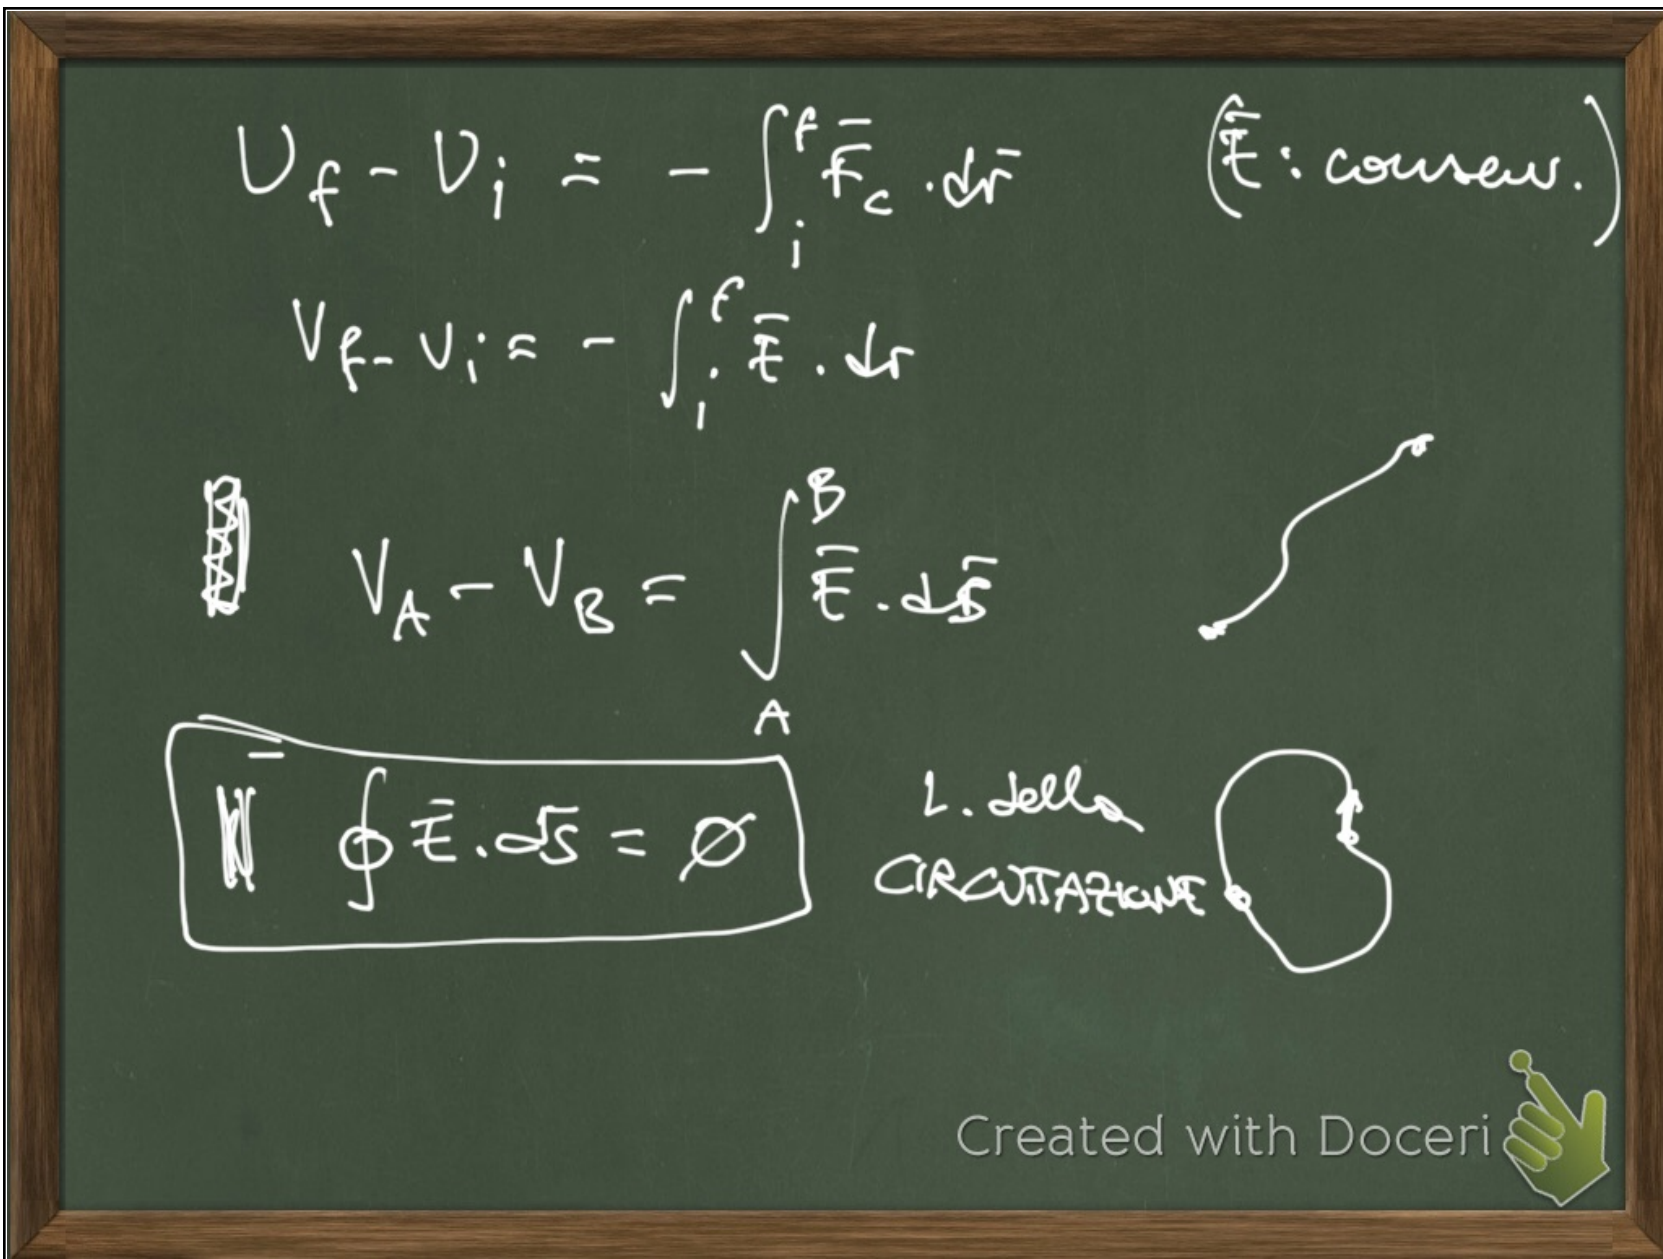 U_f - U_i = - ∫_i^f F̄_c · dr̄ (Ē : conserv.)
V_f - V_i = - ∫_i^f Ē · dr
V_A - V_B = ∫_A^B Ē · ds̄
∮ Ē · ds̄ = ∅ L. della
CIRCUITAZIONE
Created with Doceri